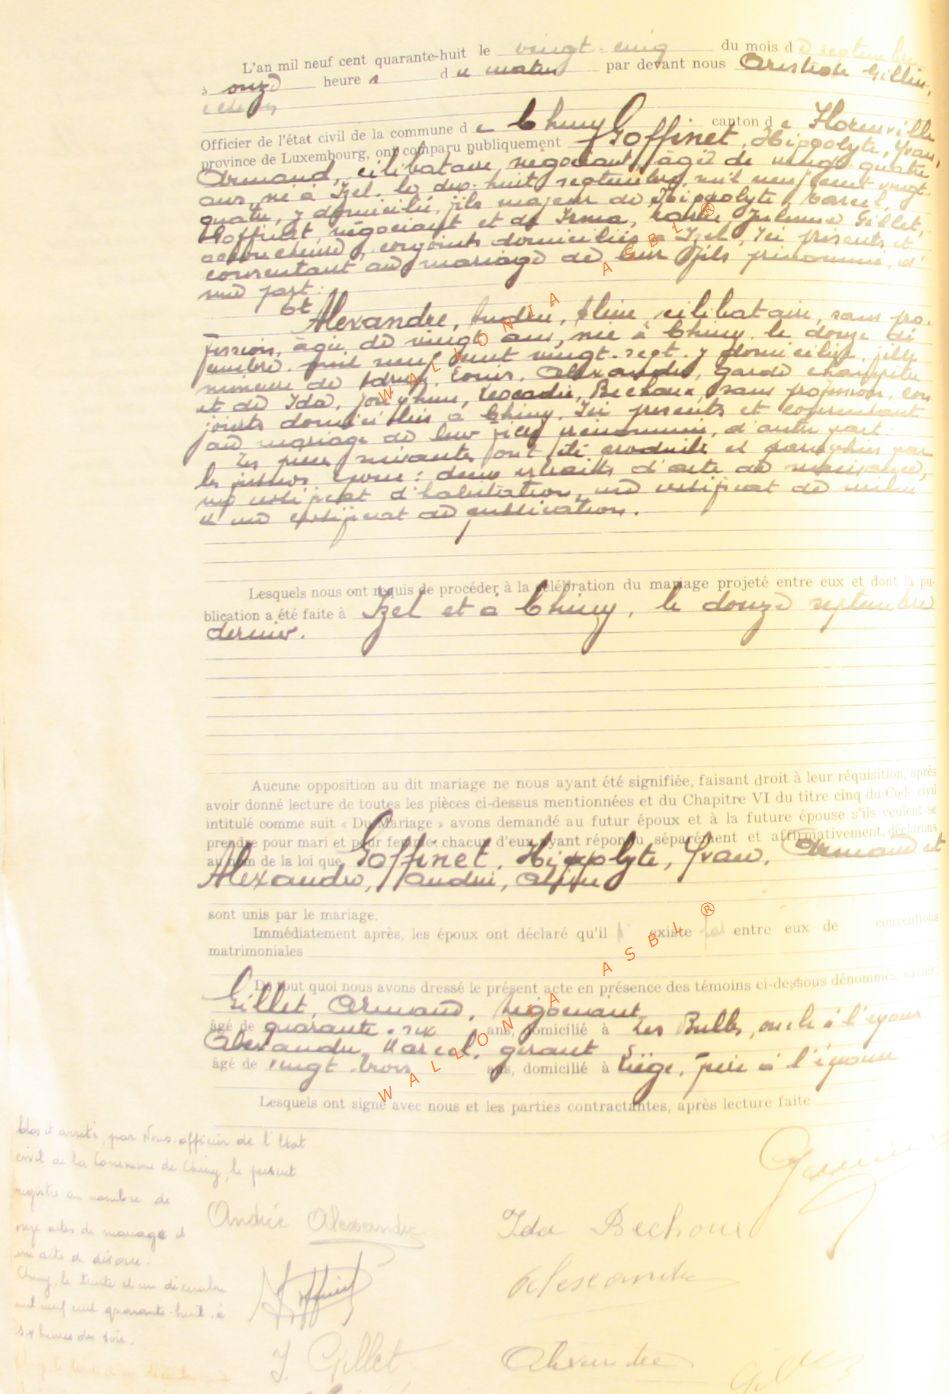 L'an mil neuf cent quarante-huit le vingt-cinq du mois d e septembre
à onze heure s d u matin par devant nous Aristide Gillin,
échevin
Officier de l'état civil de la commune d e Chiny canton d e Florenville
province de Luxembourg, ont comparu publiquement Goffinet, Hippolyte, Yvan,
Armand, célibataire, négociant, âgé de vingt quatre
ans, né à Izel le dix-huit septembre mil neuf cent vingt-
quatre, y domicilié, fils majeur de Hippolyte, Marcel,
Goffinet négociant et de Irma, Marie, Julienne Gillet,
conjoints domiciliés à Izel, Ici présents et
consentant au mariage de leur fils prénommé, d'
une part.
Et Alexandre, Andrée, Aline, célibataire, sans pro-
fession, âgée de vingt ans, née à Chiny, le douze dé
cembre mil neuf cent vingt-sept, y domiciliée, fille
mineure de Louis, Alexandre, garde champêtre
et de Ida, Joséphine, Léocadie, Bechoux, sans profession, con
joints domiciliés à Chiny. Ici présents et consentant
au mariage de leur fille prénommée, d'autre part.
Les pièces suivantes ont été produites et paraphées par
les futurs époux: deux extraits d'acte de naissance,
un certificat d'habitation, un certificat de milice
et un certificat de publication.
Lesquels nous ont requis de procéder à la célébration du mariage projeté entre eux et dont la pu-
blication a été faite à Izel et à Chiny, le douze septembre
dernier.
Aucune opposition au dit mariage ne nous ayant été signifiée, faisant droit à leur réquisition, après
avoir donné lecture de toutes les pièces ci-dessus mentionnées et du Chapitre VI du titre cinq du Code civil
intitulé comme suit « Du Mariage » avons demandé au futur époux et à la future épouse s'ils veulent se
prendre pour mari et pour femme; chacun d'eux ayant répondu séparément et affirmativement, déclarons
au nom de la loi que Goffinet, Hippolyte, Yvan, Armand et
Alexandre, Andrée, Aline
sont unis par le mariage.
Immédiatement après, les époux ont déclaré qu'il existe pas entre eux de conventions
matrimoniales
De tout quoi nous avons dressé le présent acte en présence des témoins ci-dessous dénommés, savoir:
Gillet, Armand, négociant,
âgé de quarante-six ans, domicilié à Les Bulles, oncle à l'époux
Alexandre, Marcel, gérant
âgé de vingt-trois ans, domicilié à Liège, frère à l'épouse
Lesquels ont signé avec nous et les parties contractantes, après lecture faite
Clos et arrêté, par Nous officier de l'Etat
civil de la Commune de Chiny, le présent
registre au nombre de
onze actes de mariage et
un acte de divorce.
Chiny, le trente et un décembre
mil neuf cent quarante-huit à
six heures du soir.
Andrée Alexandre
Ida Bechoux
Goffinet
Alexandre
I. Gillet
Alexandre
WALLONIA ASBL ®
WALLONIA ASBL ®